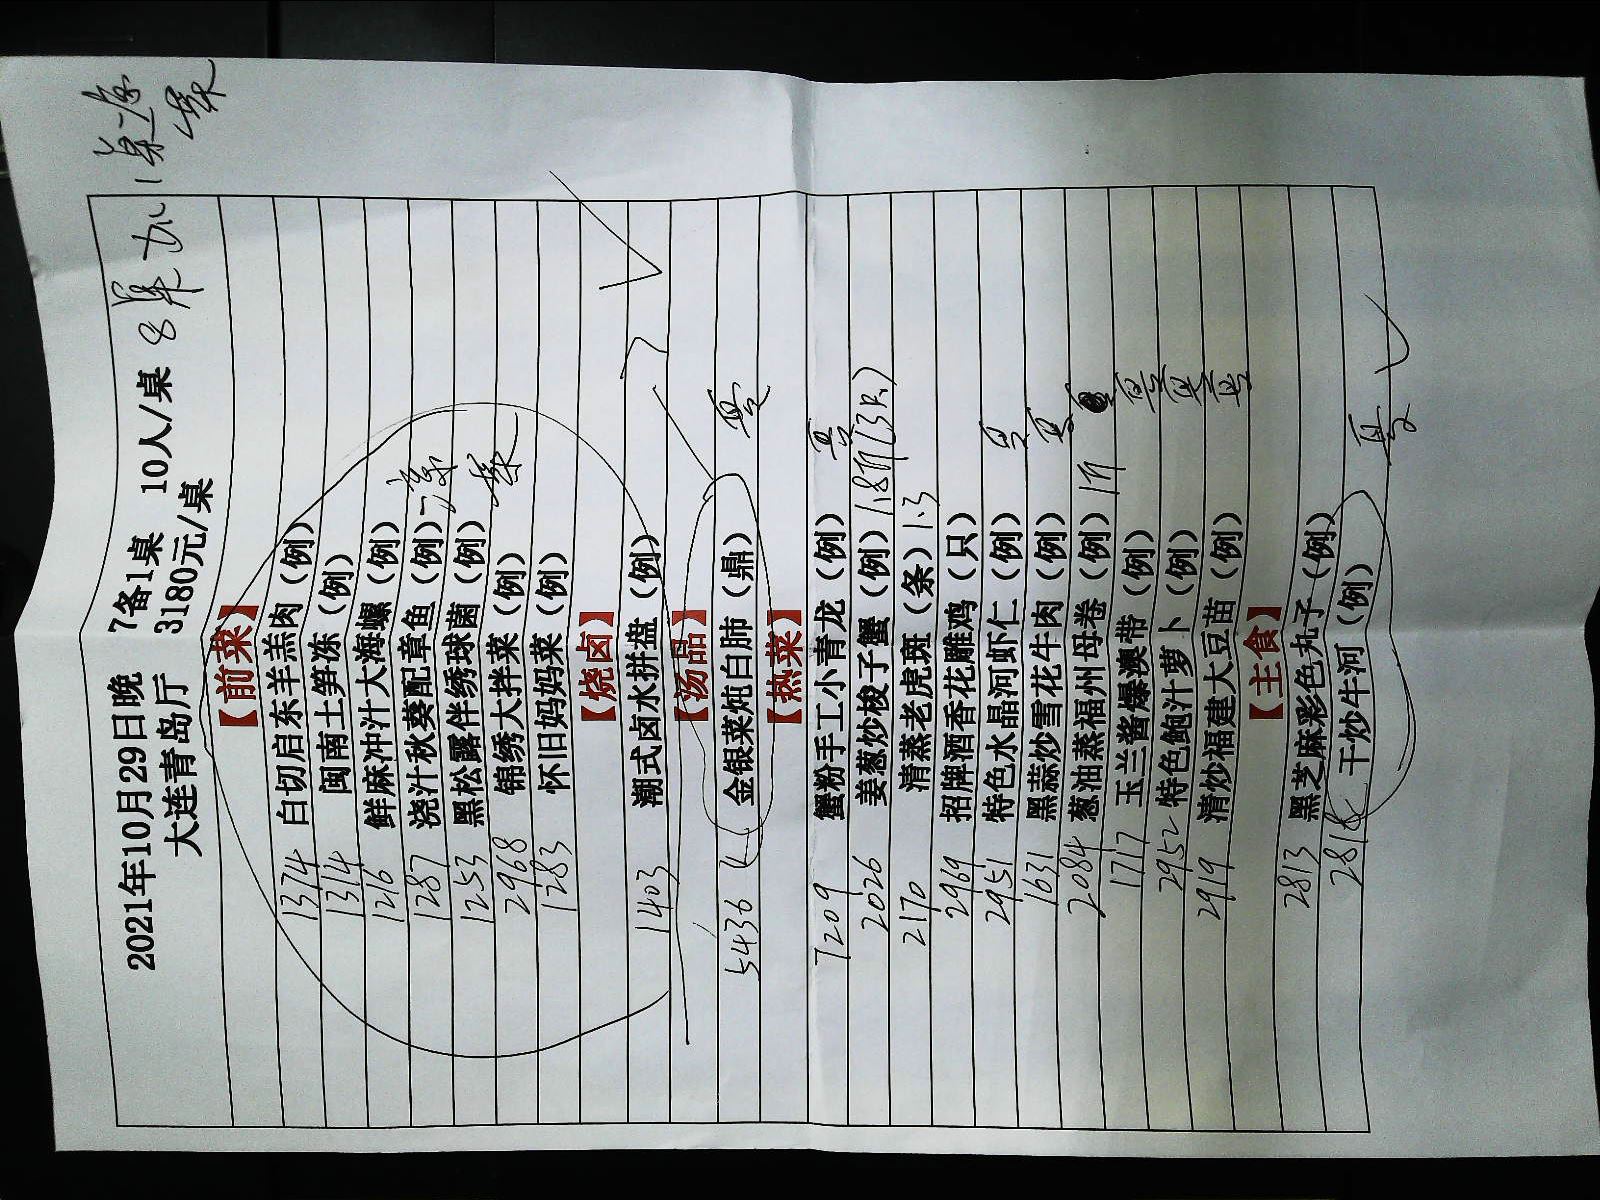 2021年10月29日晚 7备1桌 10人/桌 8桌加1桌
大连青岛厅 3180元/桌
【前菜】
1374 白切启东羊羔肉（例）
1314 闽南土笋冻（例）
1216 鲜麻冲汁大海螺（例）
1287 浇汁秋葵配章鱼（例）
1253 黑松露伴绣球菌（例）
2968 锦绣大拌菜（例）
1283 怀旧妈妈菜（例）
【烧卤】
1403 潮式卤水拼盘（例）
【汤品】
5436 金银菜炖白肺（鼎）
【热菜】
7209 蟹粉手工小青龙（例）
2026 姜葱炒梭子蟹（例）1.8斤(3只)
2170 清蒸老虎斑（条）1.3
2969 招牌酒香花雕鸡（只）
2951 特色水晶河虾仁（例）
1631 黑蒜炒雪花牛肉（例）
2084 葱油蒸福州母卷（例）1斤
1717 玉兰酱爆澳带（例）
2952 特色鲍汁萝卜（例）
2919 清炒福建大豆苗（例）
【主食】
2813 黑芝麻彩色丸子（例）
2818 干炒牛河（例）